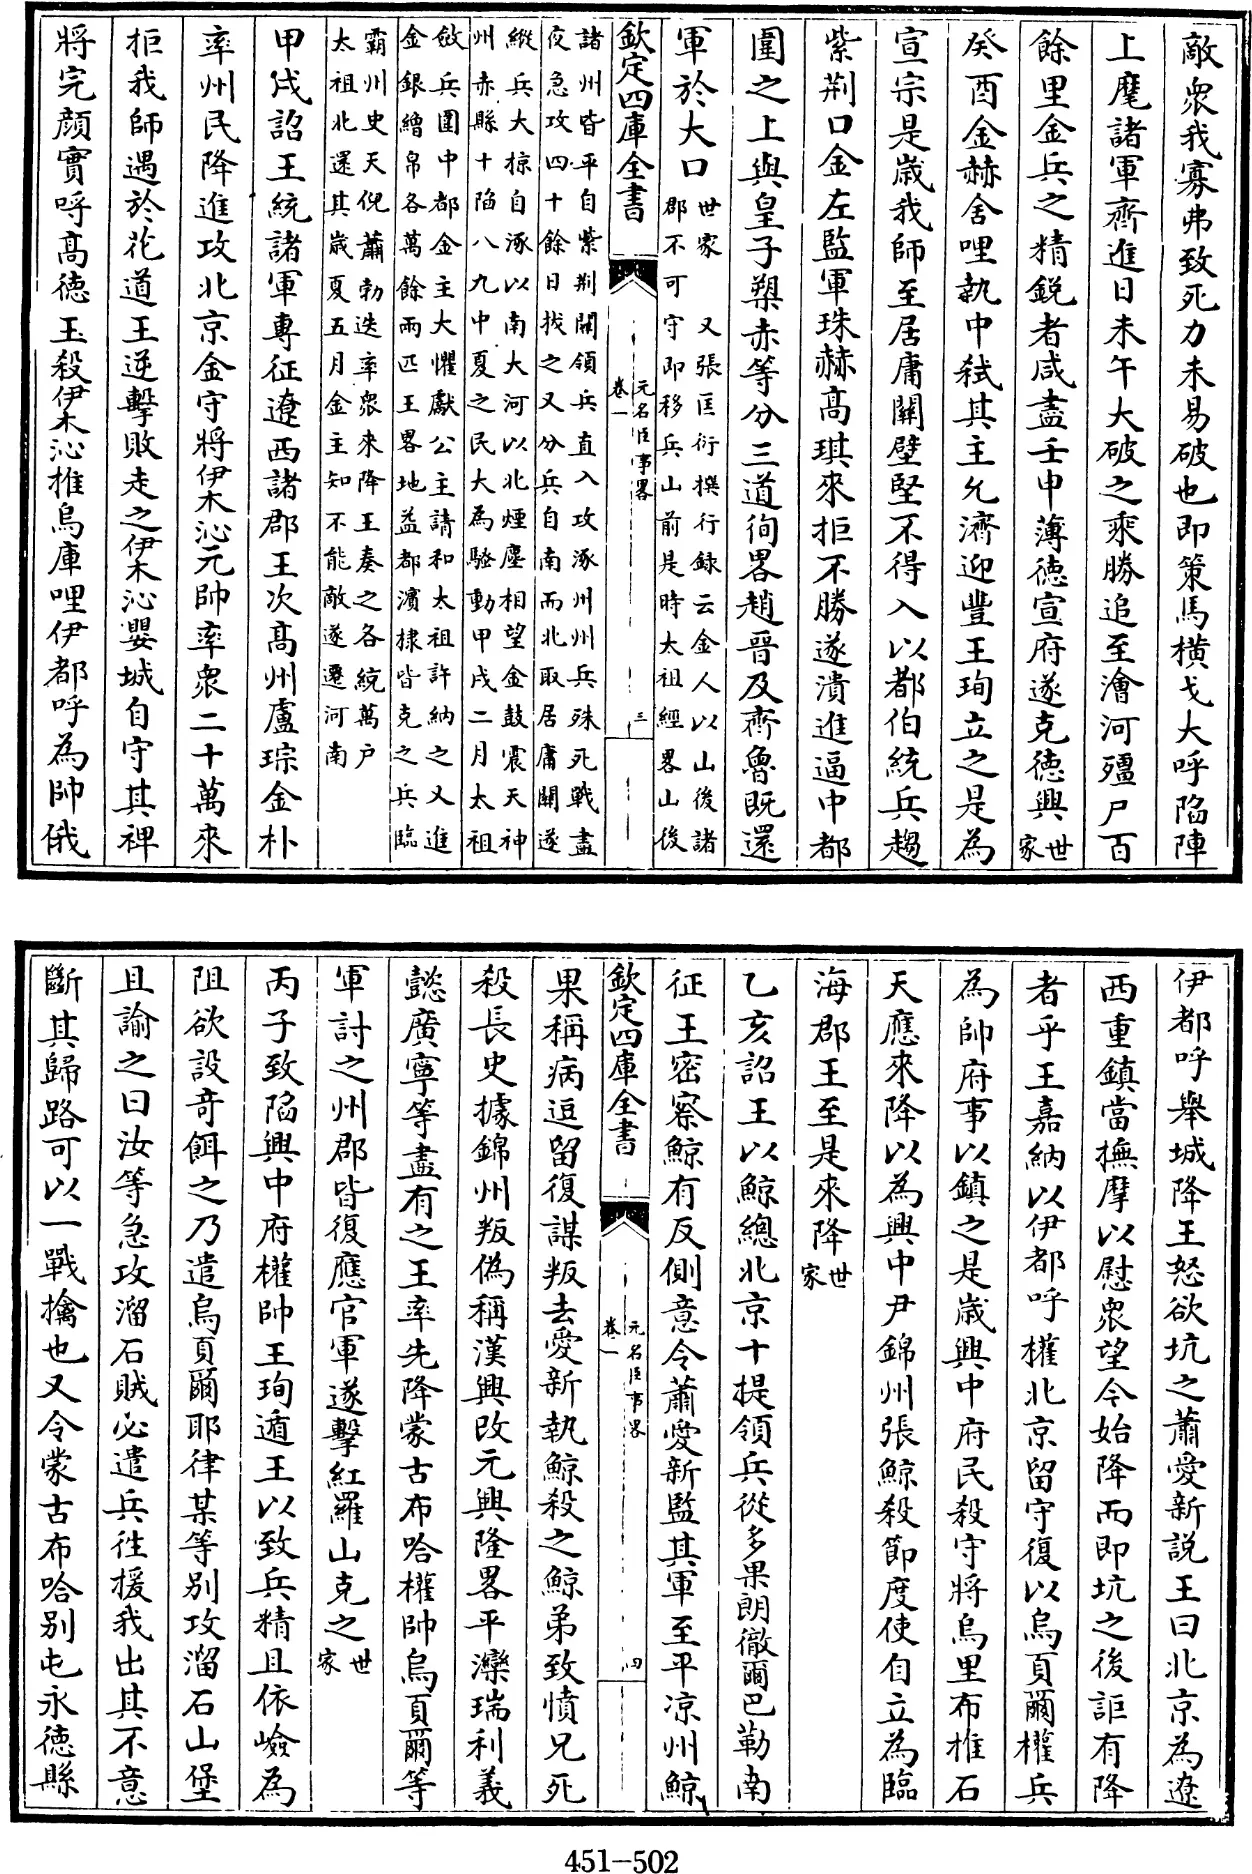 敵衆我寡弗致死力未易破也即策馬横戈大呼陷陣
上麾諸軍齊進日未午大破之乘勝追至澮河殭尸百
餘里金兵之精鋭者咸盡壬申薄德宣府遂克德興世家
癸酉金赫舍哩執中弑其主允濟迎豐王珣立之是為
宣宗是歲我師至居庸關壁堅不得入以都伯統兵趨
紫荆口金左監軍珠赫高琪來拒不勝遂潰進逼中都
圍之上與皇子槊赤等分三道徇畧趙晉及齊魯既還
軍於大口世家 又張匡衍撰行録云金人以山後諸
郡不可守即移兵山前是時太祖經畧山後
欽定四庫全書
元名臣事畧
卷一
三
諸州皆平自紫荆關領兵直入攻涿州州兵殊死戰盡
夜急攻四十餘日找之又分兵自南而北取居庸關遂
縱兵大掠自涿以南大河以北煙塵相望金鼓震天神
州赤縣十陷八九中夏之民大為騷動甲戌二月太祖
斂兵圍中都金主大懼獻公主請和太祖許納之又進
金銀繒帛各萬餘兩匹王畧地益都濱棣皆克之兵臨
霸州史天倪蕭勃迭率衆來降王奏之各統萬户
太祖北還其歲夏五月金主知不能敵遂遷河南
甲戌詔王統諸軍專征遼西諸郡王次高州盧琮金朴
率州民降進攻北京金守將伊木沁元帥率衆二十萬來
拒我師遇於花道王逆擊敗走之伊木沁嬰城自守其裨
將完顔實哷高德玉殺伊木沁推烏庫哩伊都呼為帥俄
伊都呼舉城降王怒欲坑之蕭愛新説王曰北京為遼
西重鎮當撫摩以慰衆望今始降而即坑之後詎有降
者乎王嘉納以伊都呼權北京留守復以烏頁爾權兵
為帥府事以鎮之是歲興中府民殺守將烏里布推石
天應來降以為興中尹錦州張鯨殺節度使自立為臨
海郡王至是來降世家
乙亥詔王以鯨總北京十提領兵從多果朗徹爾巴勒南
征王密察鯨有反側意令蕭愛新監其軍至平凉州鯨
欽定四庫全書
元名臣事畧
卷一
四
果稱病逗留復謀叛去愛新執鯨殺之鯨弟致憤兄死
殺長史據錦州叛偽稱漢興改元興隆畧平灤瑞利義
懿廣寧等盡有之王率先降蒙古布哈權帥烏頁爾等
軍討之州郡皆復應官軍遂擊紅羅山克之世家
丙子致陷興中府權帥王珣遁王以致兵精且依嶮為
阻欲設奇餌之乃遣烏頁爾耶律某等别攻溜石山堡
且諭之曰汝等急攻溜石賊必遣兵往援我出其不意
斷其歸路可以一戰擒也又令蒙古布哈别屯永德縣
451-502